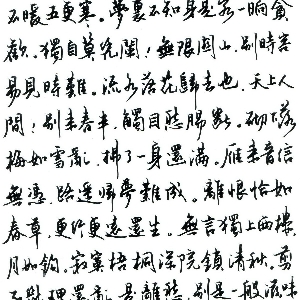 不暖五更寒。夢裏不知身是客一晌貪
歡。獨自莫凭闌！無限關山，別時容
易見時難。流水落花歸去也，天上人
間！別來春半，觸目愁腸斷。砌下落
梅如雪亂，拂了一身還滿。雁來音信
無憑，路遙歸夢難成。離恨恰如
春草，更行更遠還生。無言獨上西樓，
月如鉤。寂寞梧桐深院鎖清秋。剪
不斷理還亂，是離愁。別是一般滋味